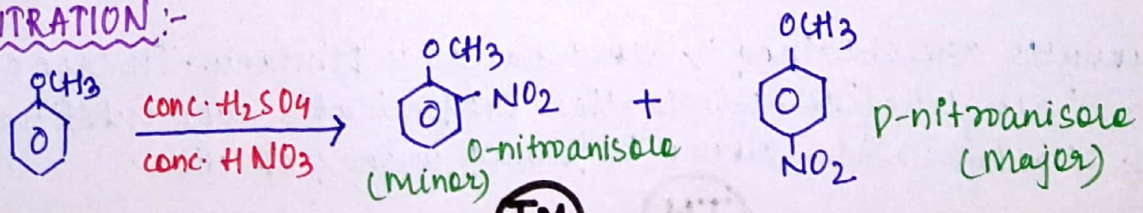 TRATION :-
OCH3
conc: H2SO4
conc. HNO3
OCH3
NO2
o-nitroanisole
(Minor)
+
OCH3
NO2
p-nitroanisole
(Major)
TM